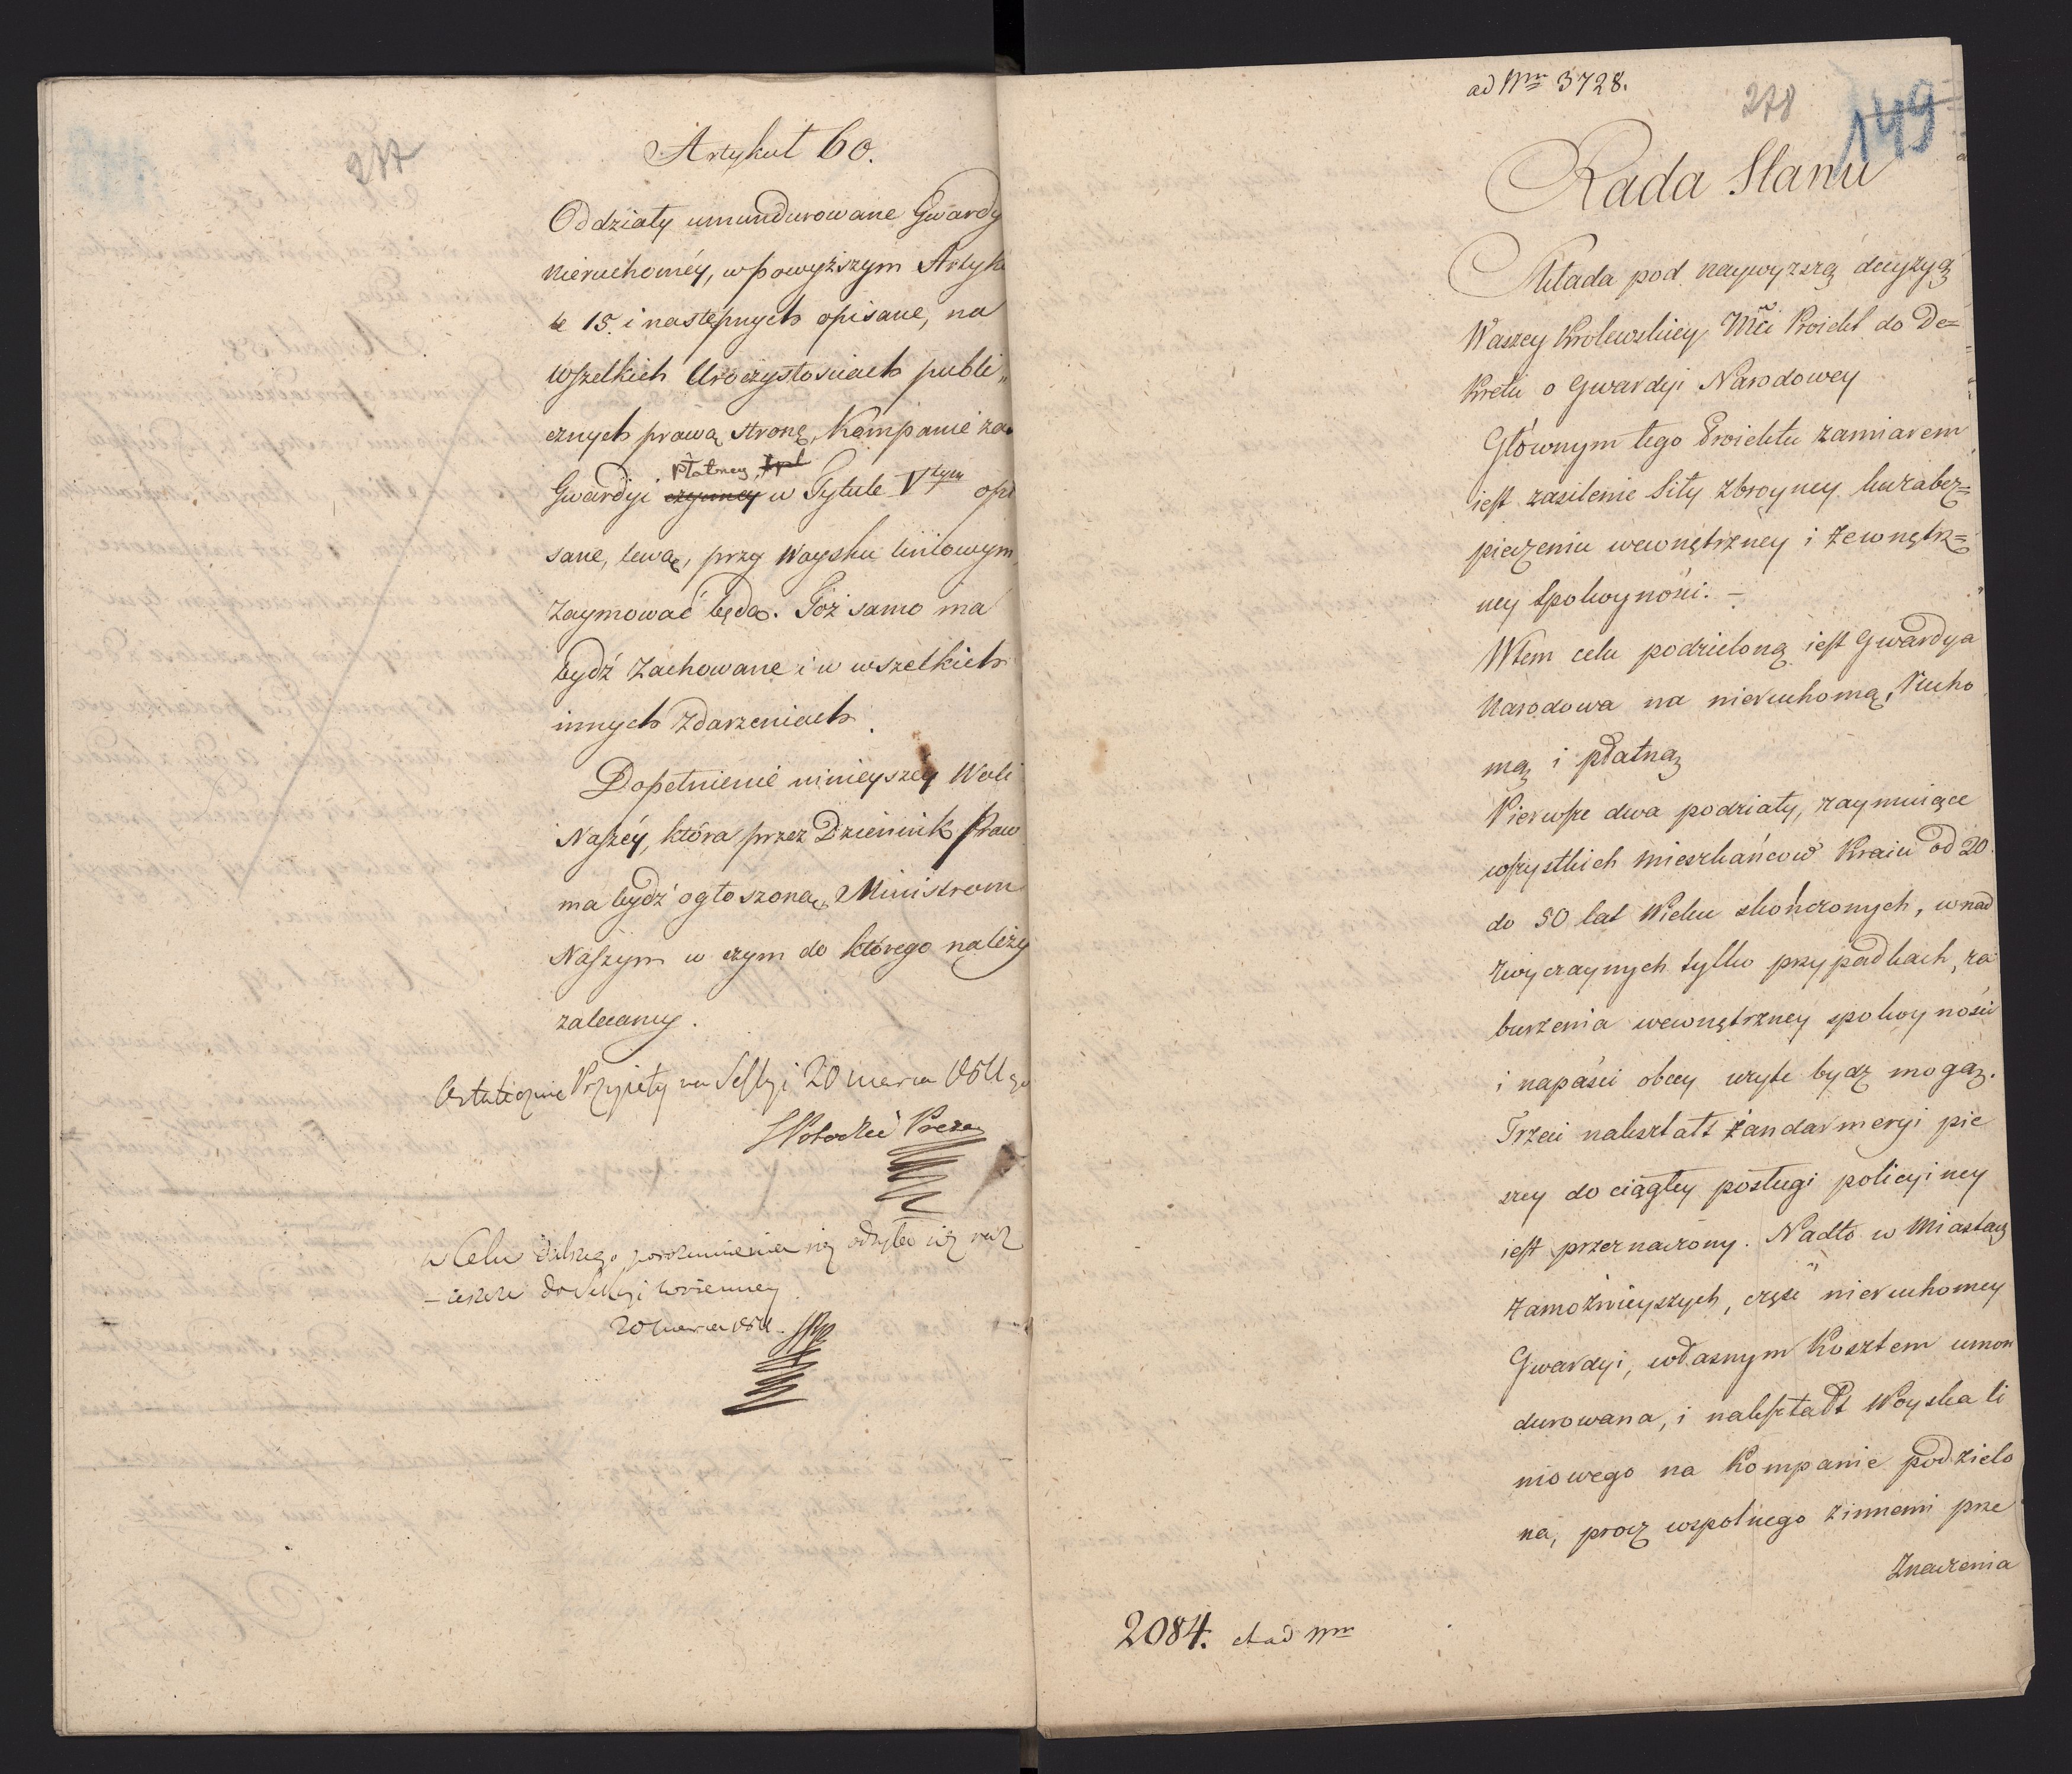 277
Artykuł 60.
Oddziały umundurowane Gwardy
nieruchoméy, w powyższym Artyk
le 15. i następnych opisane, na
wszelkich Uroczystościach publi„
cznych prawą stronę, Kompanie zaś
płatney
Gwardyi czynney w Tytule Vtym opi
sane, lewą, przy Woysku liniowym,
zaymować będą. Toż samo ma
bydź zachowane i w wszelkich
innych zdarzeniach.
Dopełnienie ninieyszéy Woli
Naszéy, która przez Dziennik Praw
ma bydź ogłoszoną, Ministrom
Naszym w czym do którego należy
zalecamy.
Ostatecznie Przyięty na Sessyi 20 marca 1811 go
SPotocki Prezes
w Celu dalszego porozumienia się odsyła się raz
– ieszcze do Sekcyi woienney
20 marca 1811. SPP
ad Nrm 3728.
278
149
Rada Stanu
Składa pod naywyzszą decyzyą
Waszey Krolewskiey Mci Proiekt do De=
kretu o Gwardyi Narodowey
Głównym tego Proiektu zamiarem
iest zasilenie Siły zbroyney ku zabez=
pieczeniu wewnętrzney i zewnętrz=
ney Spokoyności. –
W tem celu podzieloną iest Gwardya
Narodowa na nieruchomą, Rucho
mą i płatną
Pierwsze dwa podziały, zaymuiące
wszystkich mieszkańcow Kraiu od 20.
do 50 lat Wieku skończonych, w nad
zwyczaynych tylko przypadkach, za
burzenia wewnętrzney spokoyności
i napaści obcey uzyte bydz mogą.
Trzeci nakształt żandarmeryi pie
szey do ciągłey posługi policyiney
iest przeznaczony. Nadto w Miastach
zamożnieyszych, częsc nieruchomey
Gwardyi, własnym Kosztem umon
durowana, i nakształt Woyska li
niowego na Kompanie podzielo
na, procz wspolnego z innemi prze
znaczenia
2084. et ad Nrm